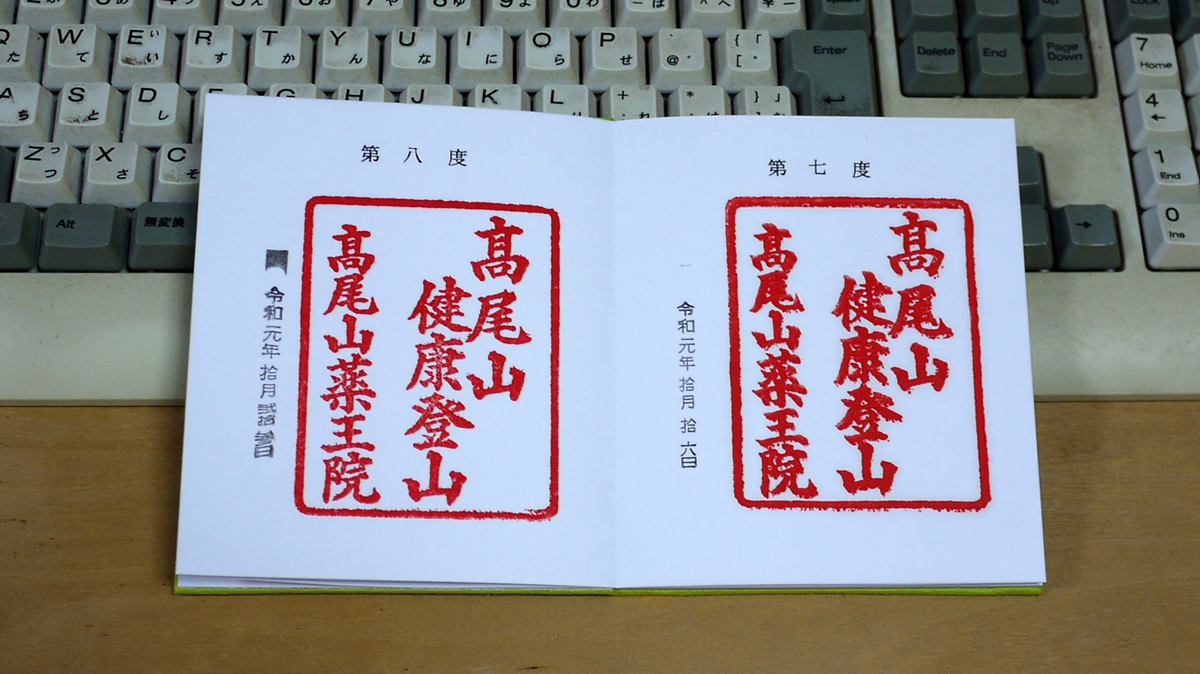 第七度
髙尾山
健康登山
髙尾山薬王院
令和元年拾月拾六日
第八度
髙尾山
健康登山
髙尾山薬王院
令和元年拾月弐拾参日
Q た
W て
E い
R す
T か
Y ん
U な
I に
O ら
P せ
Enter
Delete
End
Page Down
7 Home
A ち
S と
D し
F
G
H
J
K
L り
4 ←
Z つ
X さ
C そ
1 End
Alt
無変換
→
0 Ins